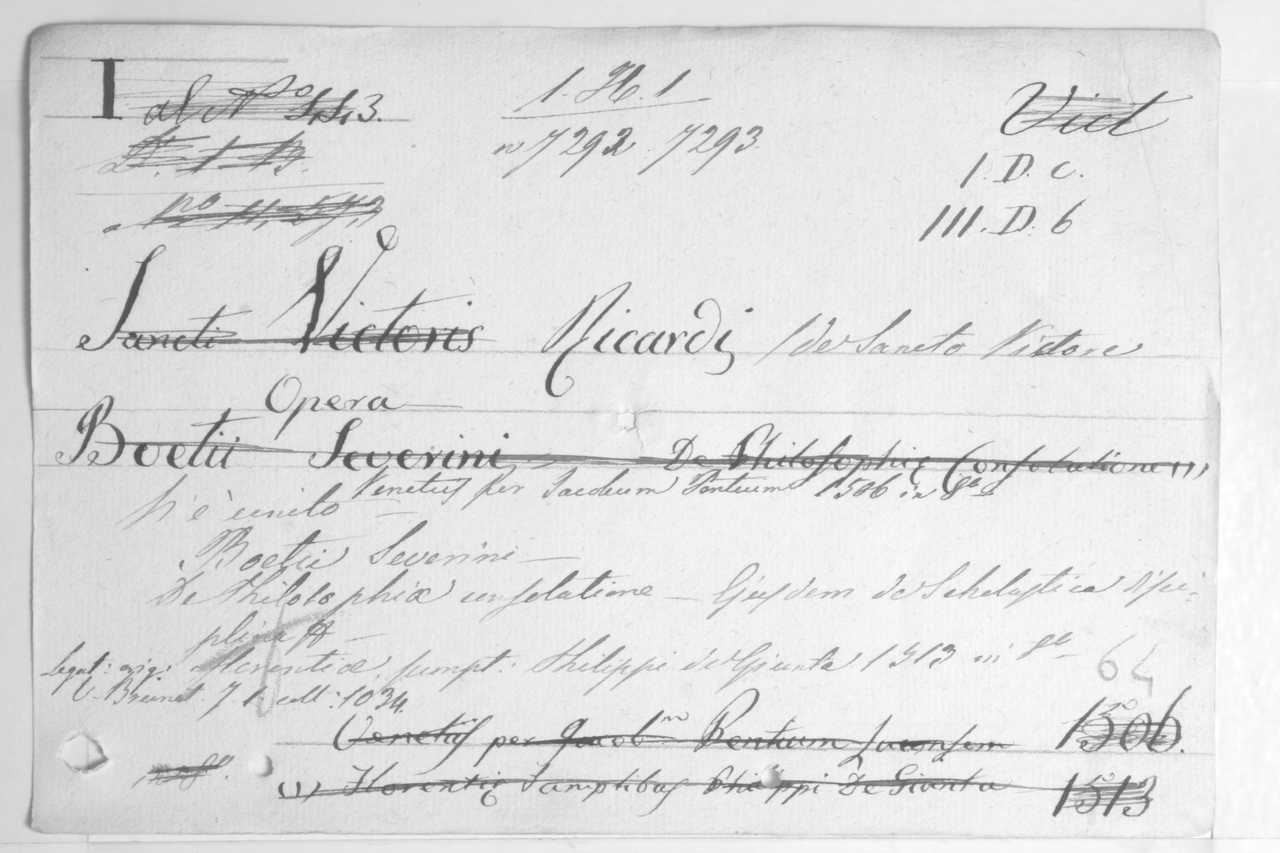 I al N.º 443.
1. H. 1
Vict
D. 1. B.
nⁱ 7292. 7293.
I. D. c.
III. D. 6
Sancti Victoris Ricardi (de Sancto Victore
Opera
Boetii Severini De Philosophię Consolatione (1)
Venetiis per Jacobum Pentium 1506 in 8º
V'è unito
Boetii Severini
De Philosophiæ consolatione — Ejusdem de Scholastica disci-
plina
legat: orig: Florentiæ, sumpt: Philippi de Giunta 1513 in 8º
64
V. Brunet. T. 1. coll: 1034.
Venetijs per Jacobᵐ Pentium Leucensem 1506.
in 8º.
(1) Florentię Sumptibus Philippi De Giunta 1513